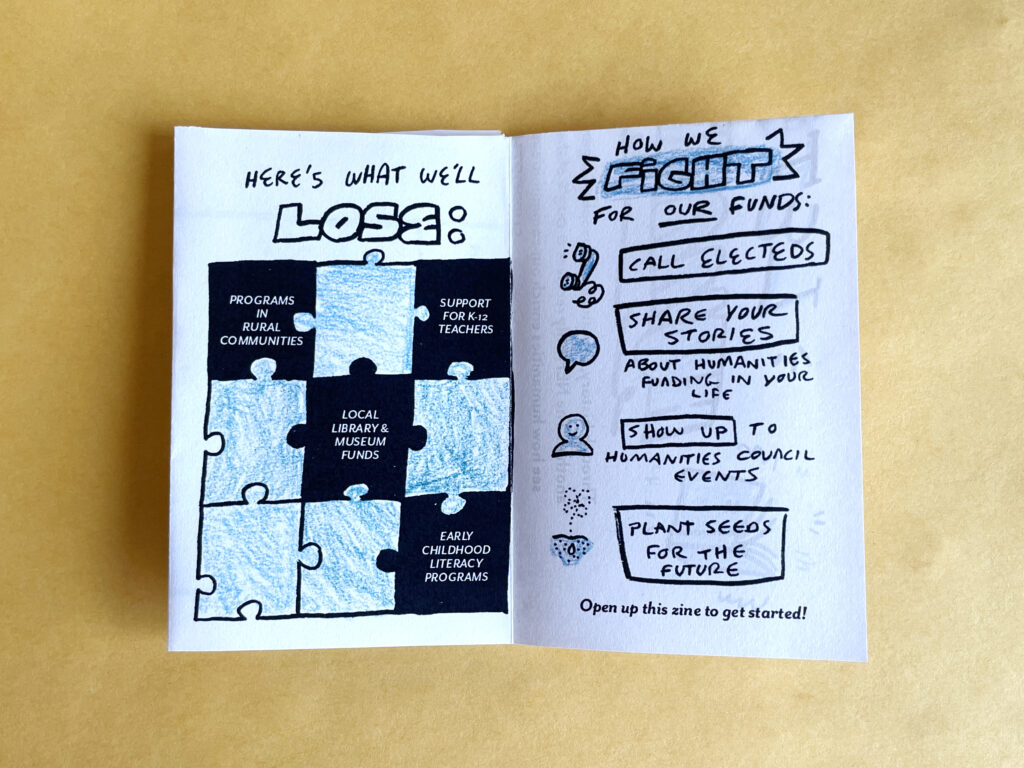 HERE'S WHAT WE'LL
LOSE:
PROGRAMS
IN
RURAL
COMMUNITIES
SUPPORT
FOR K-12
TEACHERS
LOCAL
LIBRARY &
MUSEUM
FUNDS
EARLY
CHILDHOOD
LITERACY
PROGRAMS
HOW WE
FIGHT
FOR OUR FUNDS:
CALL ELECTEDS
SHARE YOUR
STORIES
ABOUT HUMANITIES
FUNDING IN YOUR
LIFE
SHOW UP TO
HUMANITIES COUNCIL
EVENTS
PLANT SEEDS
FOR THE
FUTURE
Open up this zine to get started!